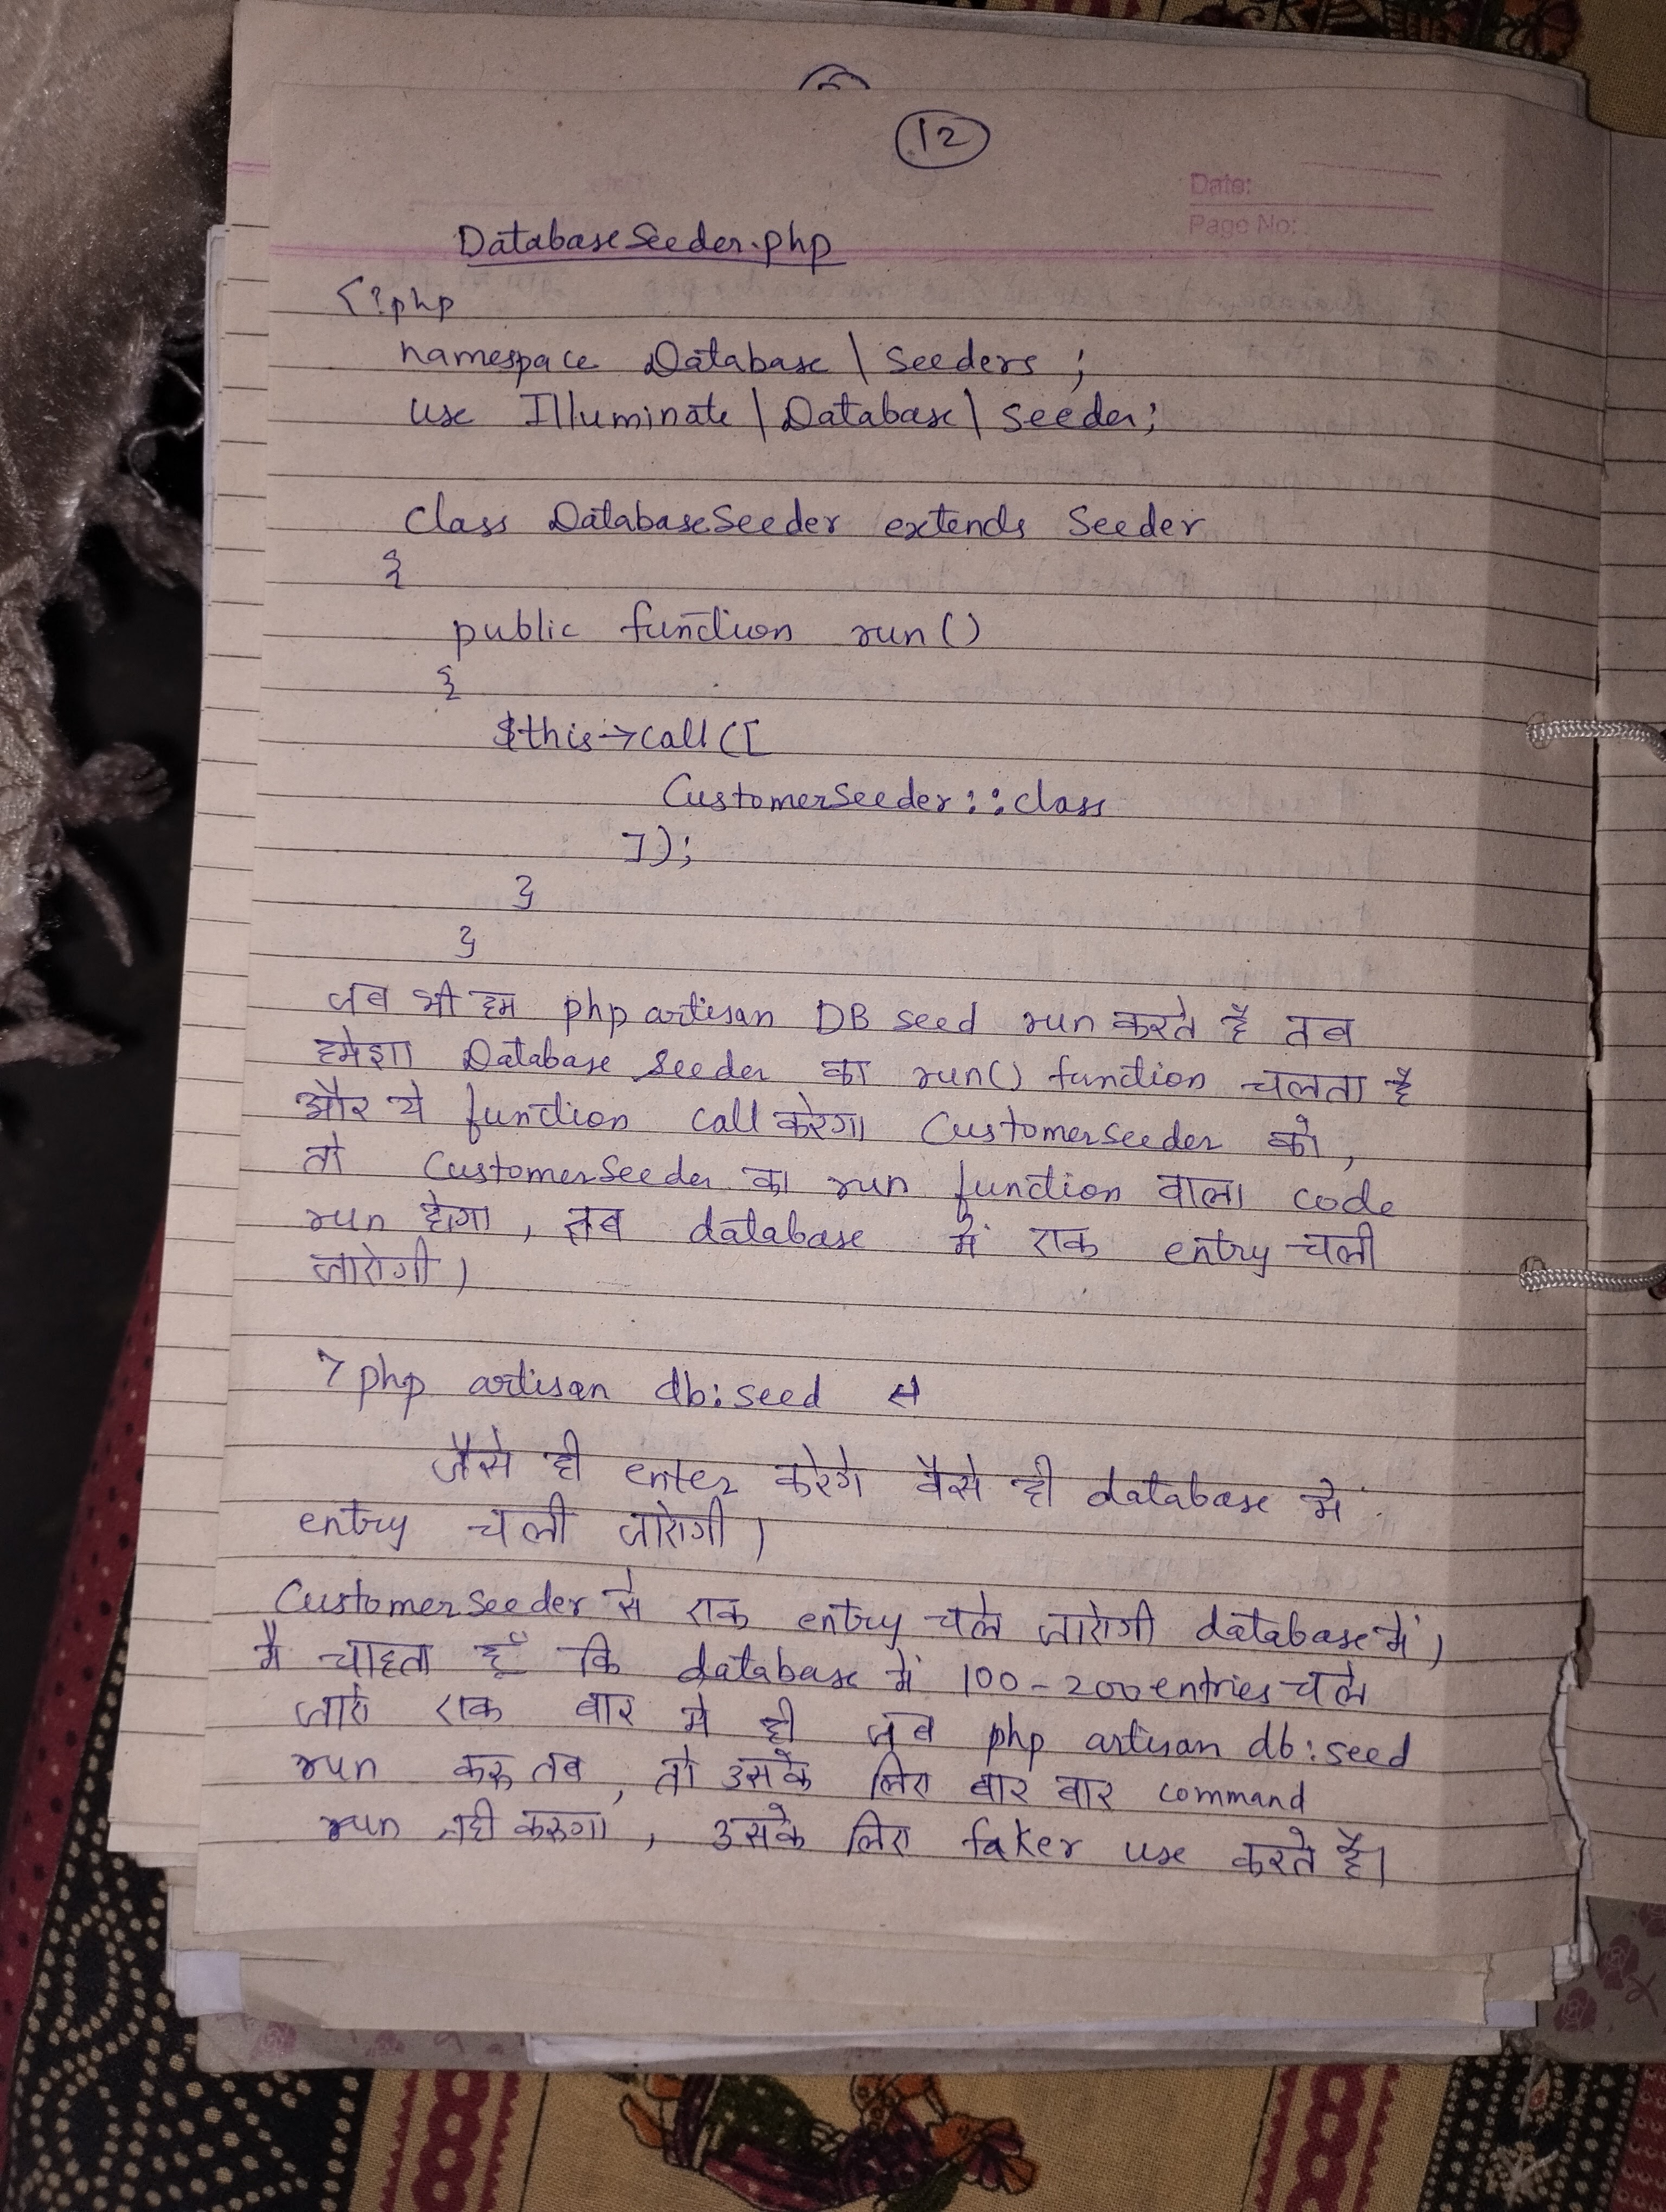 12
Date:
Page No:
DatabaseSeeder.php
<?php
namespace Database \ Seeders ;
use Illuminate \ Database \ Seeder;
class DatabaseSeeder extends Seeder
{
public function run()
{
$this->call([
CustomerSeeder::class
]);
}
}
जब भी हम php artisan DB seed run करते है तब
हमेशा Database Seeder का run() function चलता है
और ये function call करेगा CustomerSeeder को,
तो CustomerSeeder का run function वाला code
run होगा, तब database में एक entry चली
जाएेगी।
> php artisan db:seed ↵
जैसे ही enter करेगे वैसे ही database मे
entry चली जाएेगी।
CustomerSeeder से एक entry चले जाएेगी database में।
मै चाहता हूँ कि database में 100-200 entries चले
जाए एक बार मे ही जब php artisan db:seed
run करू तब, तो उसके लिए बार बार command
run नही करूगा, उसके लिए faker use करते है।